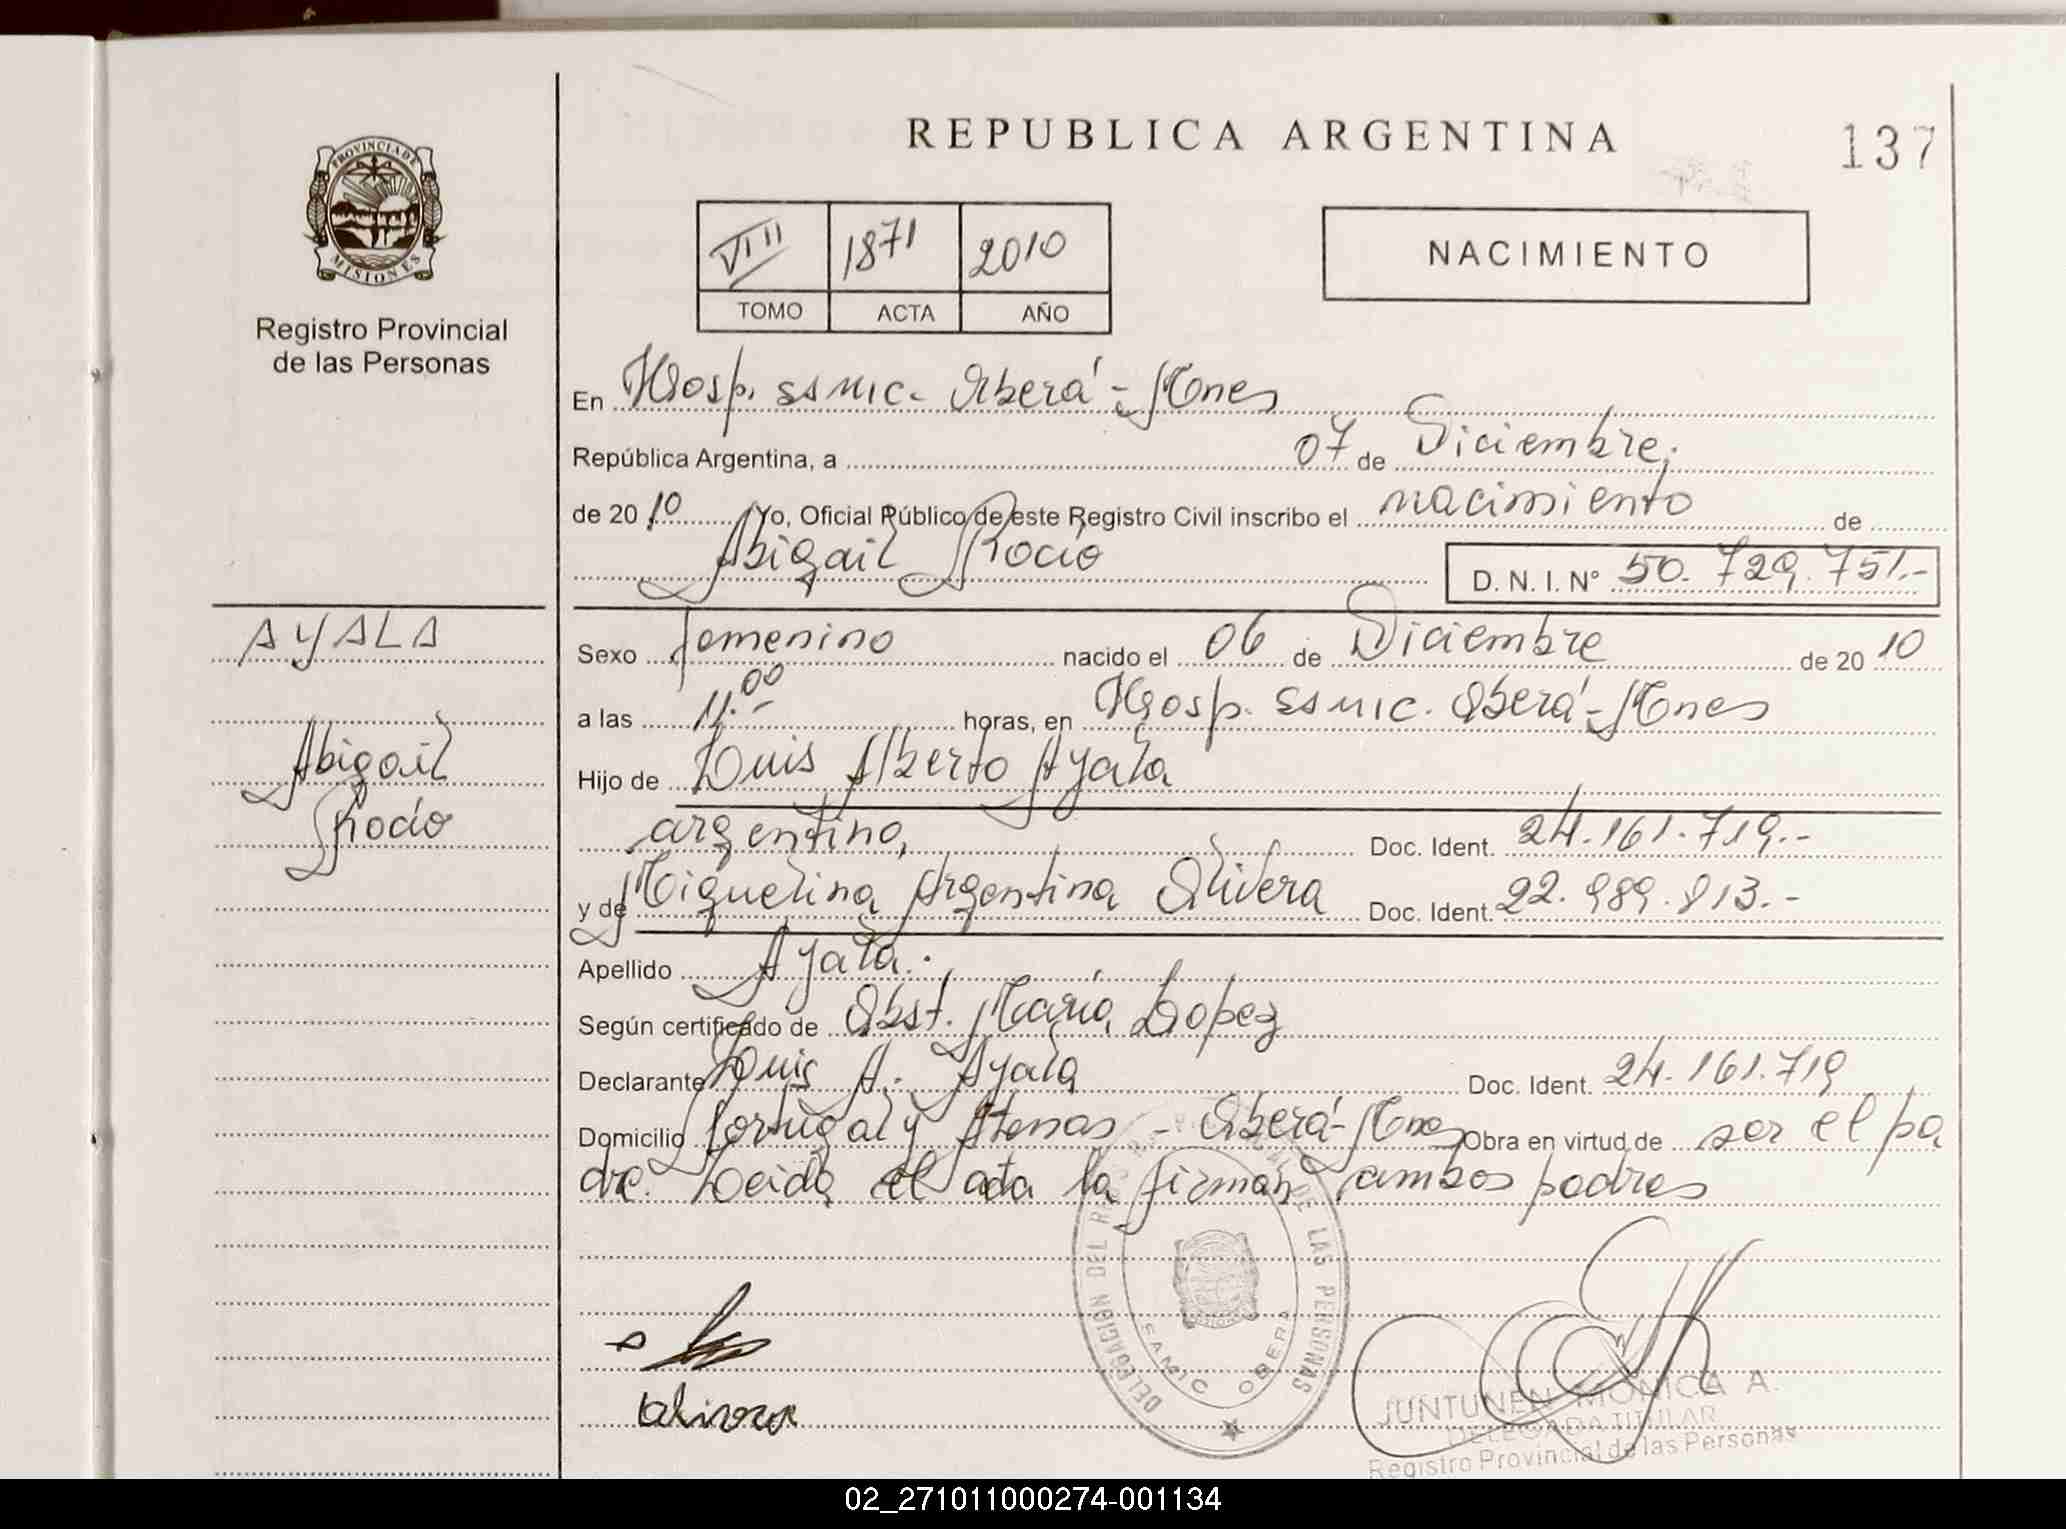 REPUBLICA ARGENTINA
137
PROVINCIA DE
MISIONES
Registro Provincial
de las Personas
VIII 1871 2010
TOMO ACTA AÑO
NACIMIENTO
En Hosp. SAMIC. Oberá - Mnes
República Argentina, a 07 de Diciembre
de 2010 Yo, Oficial Público de este Registro Civil inscribo el nacimiento de
Abigail Rocío D. N. I. Nº 50.729.751.-
AYALA
Abigail
Rocío
Sexo femenino nacido el 06 de Diciembre de 2010
a las 11.00 horas, en Hosp. SAMIC. Oberá - Mnes
Hijo de Luis Alberto Ayala
argentino, Doc. Ident. 24.161.719.-
y de Miguelina Argentina Olivera Doc. Ident. 22.989.813.-
Apellido Ayala.
Según certificado de Obst. María Lopez
Declarante Luis A. Ayala Doc. Ident. 24.161.719
Domicilio Portugal y Atenas - Oberá - Mnes Obra en virtud de ser el pa
dre. Leida el acta la firman ambos padres
DELEGACION DEL REGISTRO PROVINCIAL DE LAS PERSONAS
SAMIC OBERA
JUNTUNEN MONICA A.
DELEGADA TITULAR
Registro Provincial de las Personas
02_271011000274-001134